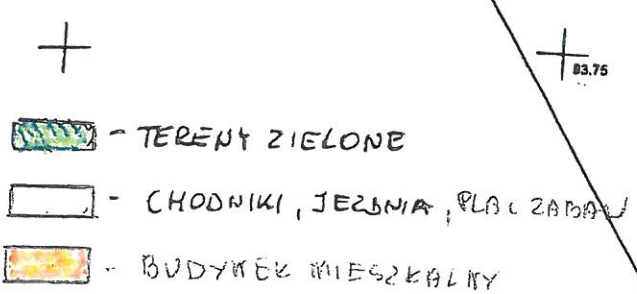 83.75
- TERENY ZIELONE
- CHODNIKI, JEZDNIA, PLAC ZABAW
- BUDYNEK MIESZKALNY